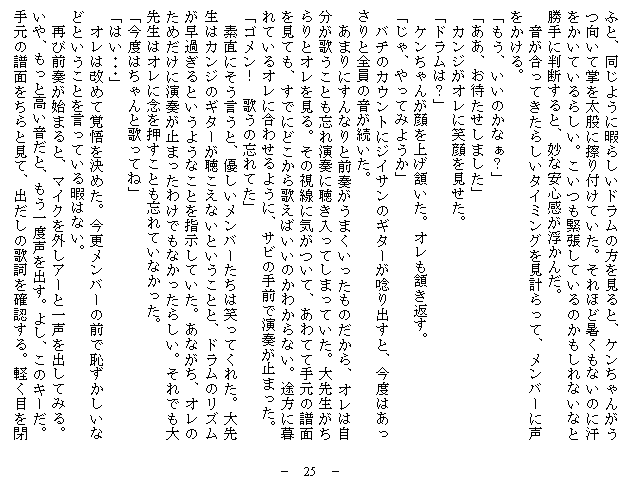 ふと、同じように暇らしいドラムの方を見ると、ケンちゃんがう
つ向いて掌を太股に擦り付けていた。それほど暑くもないのに汗
をかいているらしい。こいつも緊張しているのかもしれないなと
勝手に判断すると、妙な安心感が浮かんだ。
　音が合ってきたらしいタイミングを見計らって、メンバーに声
をかける。
「もう、いいのかなぁ？」
「ああ、お待たせしました」
　カンジがオレに笑顔を見せた。
「ドラムは？」
　ケンちゃんが顔を上げ頷いた。オレも頷き返す。
「じゃ、やってみようか」
　バチのカウントにジイサンのギターが唸り出すと、今度はあっ
さりと全員の音が続いた。
　あまりにすんなりと前奏がうまくいったものだから、オレは自
分が歌うことも忘れ演奏に聴き入ってしまっていた。大先生がち
らりとオレを見る。その視線に気がついて、あわてて手元の譜面
を見ても、すでにどこから歌えばいいのかわからない。途方に暮
れているオレに合わせるように、サビの手前で演奏が止まった。
「ゴメン！　歌うの忘れてた」
　素直にそう言うと、優しいメンバーたちは笑ってくれた。大先
生はカンジのギターが聴こえないということと、ドラムのリズム
が早過ぎるというようなことを指示していた。あながち、オレの
ためだけに演奏が止まったわけでもなかったらしい。それでも大
先生はオレに念を押すことも忘れていなかった。
「今度はちゃんと歌ってね」
「はい・・」
　オレは改めて覚悟を決めた。今更メンバーの前で恥ずかしいな
どということを言っている暇はない。
　再び前奏が始まると、マイクを外しアーと一声を出してみる。
いや、もっと高い音だと、もう一度声を出す。よし、このキーだ。
手元の譜面をちらと見て、出だしの歌詞を確認する。軽く目を閉
－　25　－